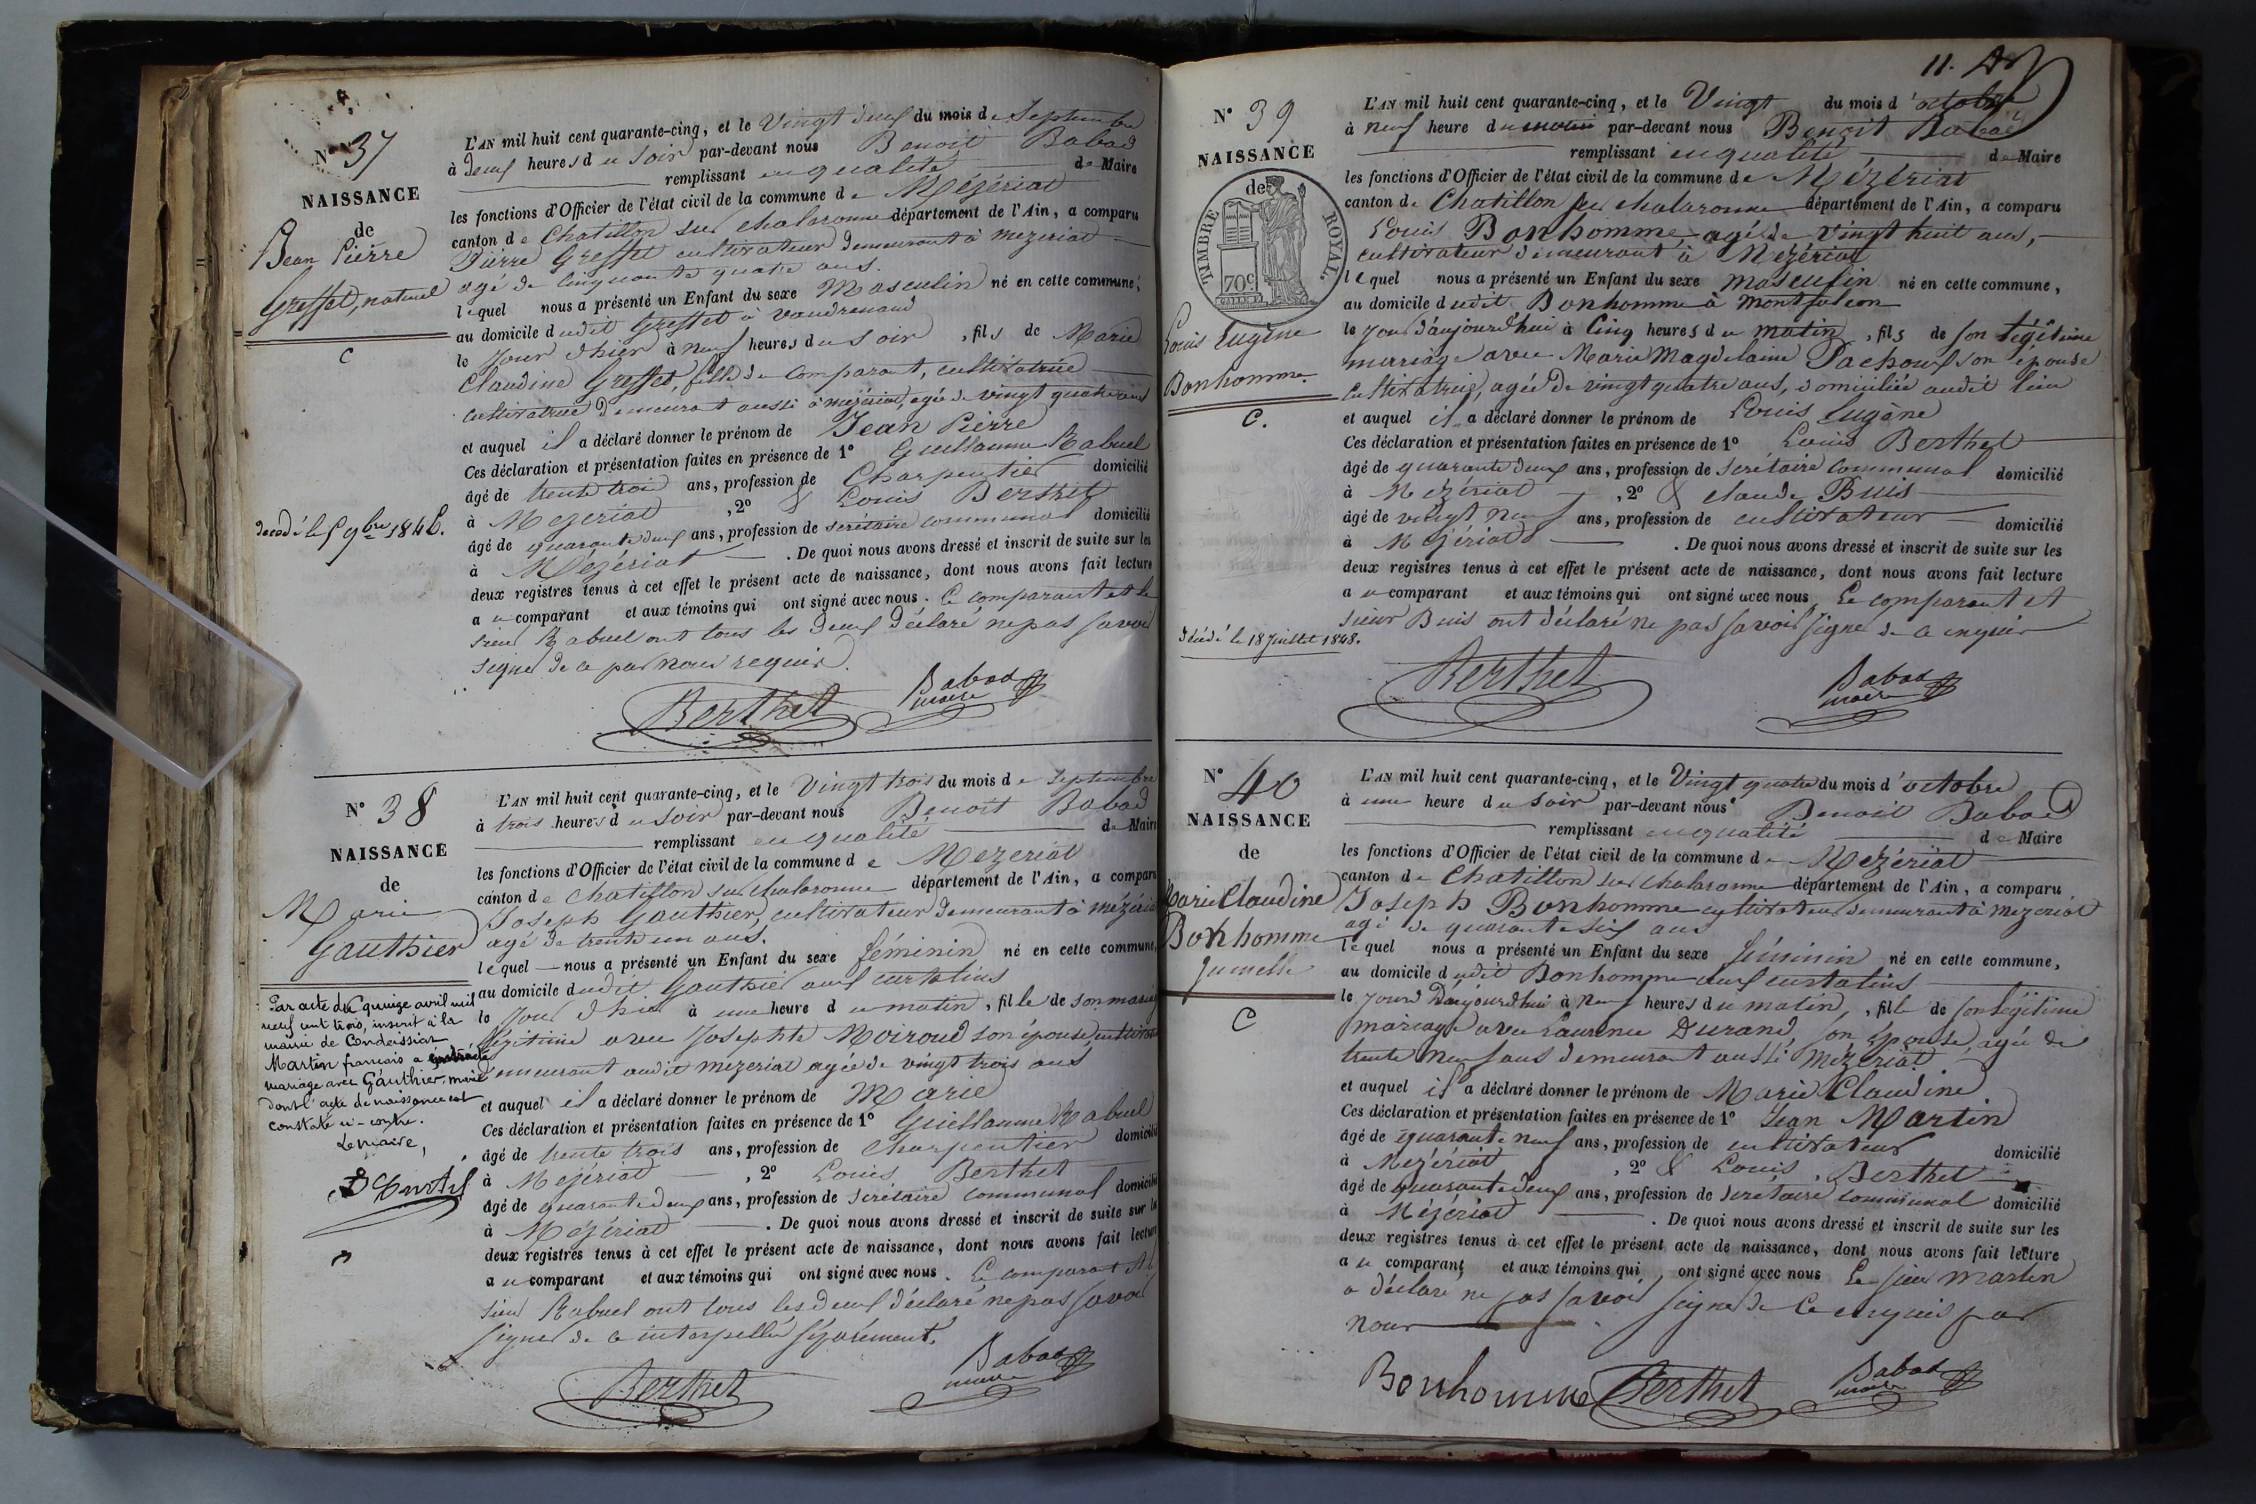 N° 37
NAISSANCE
de
Jean Pierre
Greffet, naturel
C
décédé le 5 9bre 1846.
L'AN mil huit cent quarante-cinq, et le Vingt deux du mois de Septembre
à deux heures du soir par-devant nous Benoit Babad
remplissant en qualité de Maire
les fonctions d'Officier de l'état civil de la commune de Mézériat
canton de Chatillon sur chalaronne département de l'Ain, a comparu
Pierre Greffet cultivateur demeurant à mezeriat
agé de cinquante quatre ans.
lequel nous a présenté un Enfant du sexe Masculin né en cette commune,
au domicile dudit Greffet à Vaudrenand
le jour d'hier à neuf heures du soir, fils de Marie
Claudine Greffet, fille du comparant, cultivatrice
cultivatrice demeurant aussi à mézériat, agée de vingt quatre ans
et auquel il a déclaré donner le prénom de Jean Pierre
Ces déclaration et présentation faites en présence de 1° Guillaume Rabuel
âgé de trente trois ans, profession de Charpentier domicilié
à Mezeriat, 2° & Louis Berthet
âgé de quarante deux ans, profession de secrétaire communal domicilié
à Mézériat. De quoi nous avons dressé et inscrit de suite sur les
deux registres tenus à cet effet le présent acte de naissance, dont nous avons fait lecture
au comparant et aux témoins qui ont signé avec nous. Le comparant et le
sieur Rabuel ont tous les deux déclaré ne pas savoir
signer de ce par nous requis.
Berthet
Babad
maire
N° 38
NAISSANCE
de
Marie
Gauthier
Par acte du quinze avril mil
neuf cent trois, inscrit à la
mairie de Condeissiat
Martin francois a contracté
mariage avec Gauthier, marie
dont l'acte de naissance est
constaté ci-contre.
Le maire,
L'AN mil huit cent quarante-cinq, et le Vingt trois du mois de septembre
à trois heures du soir par-devant nous Benoit Babad
remplissant en qualité de Maire
les fonctions d'Officier de l'état civil de la commune de Mezeriat
canton de Chatillon sur Chalaronne département de l'Ain, a comparu
Joseph Gauthier, cultivateur demeurant à mézériat
agé de trente un ans.
lequel nous a présenté un Enfant du sexe féminin né en cette commune,
au domicile dudit Gauthier aux curtalins
le jour d'hier à une heure du matin, fille de son mariage
légitime avec Josephte Moiroud son épouse, cultivatrice
demeurant audit mezeriat agée de vingt trois ans
et auquel il a déclaré donner le prénom de Marie
Ces déclaration et présentation faites en présence de 1° Guillaume Rabuel
âgé de trente trois ans, profession de charpentier domicilié
à Mezériat, 2° Louis Berthet
âgé de quarante deux ans, profession de secrétaire communal domicilié
à Mézériat. De quoi nous avons dressé et inscrit de suite sur les
deux registres tenus à cet effet le présent acte de naissance, dont nous avons fait lecture
au comparant et aux témoins qui ont signé avec nous. Le comparant et le
sieur Rabuel ont tous les deux déclaré ne pas savoir
signer de ce interpellés séparément.
Berthet
Babad
maire
11.
N° 39
NAISSANCE
de
TIMBRE ROYAL.
70c
Louis Eugène
Bonhomme.
C.
décédé le 18 Juillet 1848.
L'AN mil huit cent quarante-cinq, et le Vingt du mois d'octobre
à neuf heure du matin par-devant nous Benoit Babad
remplissant en qualité de Maire
les fonctions d'Officier de l'état civil de la commune de Mézériat
canton de Chatillon sur chalaronne département de l'Ain, a comparu
Louis Bonhomme agé de vingt huit ans,
cultivateur demeurant à Mézériat
lequel nous a présenté un Enfant du sexe masculin né en cette commune,
au domicile dudit Bonhomme à Montfalcon
le jour d'aujourd'hui à Cinq heures du matin, fils de son légitime
mariage avec Marie Magdelaine Pachoux son épouse
cultivatrice, agée de vingt quatre ans, domiciliée audit lieu
et auquel il a déclaré donner le prénom de Louis Eugène
Ces déclaration et présentation faites en présence de 1° Louis Berthet
âgé de quarante deux ans, profession de secrétaire communal domicilié
à Mézériat, 2° & claude Buis
âgé de vingt neuf ans, profession de cultivateur domicilié
à Mezériat. De quoi nous avons dressé et inscrit de suite sur les
deux registres tenus à cet effet le présent acte de naissance, dont nous avons fait lecture
au comparant et aux témoins qui ont signé avec nous Le comparant et
sieur Buis ont déclaré ne pas savoir signer de ce enquis
Berthet
Babad
maire
N° 40
NAISSANCE
de
Marie Claudine
Bonhomme
Jumelle
C
L'AN mil huit cent quarante-cinq, et le Vingt quatre du mois d'octobre
à une heure du soir par-devant nous Benoit Babad
remplissant en qualité de Maire
les fonctions d'Officier de l'état civil de la commune de Mézériat
canton de Chatillon sur chalaronne département de l'Ain, a comparu
Joseph Bonhomme cultivateur demeurant à mezeriat
agé de quarante six ans
lequel nous a présenté un Enfant du sexe féminin né en cette commune,
au domicile dudit Bonhomme aux curtalins
le jour d'aujourd'hui à neuf heures du matin, fille de son légitime
mariage avec Laurence Durand, son épouse, agée de
trente neuf ans demeurant aussi Mezeriat
et auquel il a déclaré donner le prénom de Marie Claudine
Ces déclaration et présentation faites en présence de 1° Jean Martin
âgé de quarante neuf ans, profession de cultivateur domicilié
à Mezériat, 2° & Louis Berthet
âgé de quarante deux ans, profession de secrétaire communal domicilié
à Mézériat. De quoi nous avons dressé et inscrit de suite sur les
deux registres tenus à cet effet le présent acte de naissance, dont nous avons fait lecture
au comparant et aux témoins qui ont signé avec nous Le sieur Martin
a déclaré ne pas savoir signer de ce enquis par
nous
Bonhomme Berthet
Babad
maire